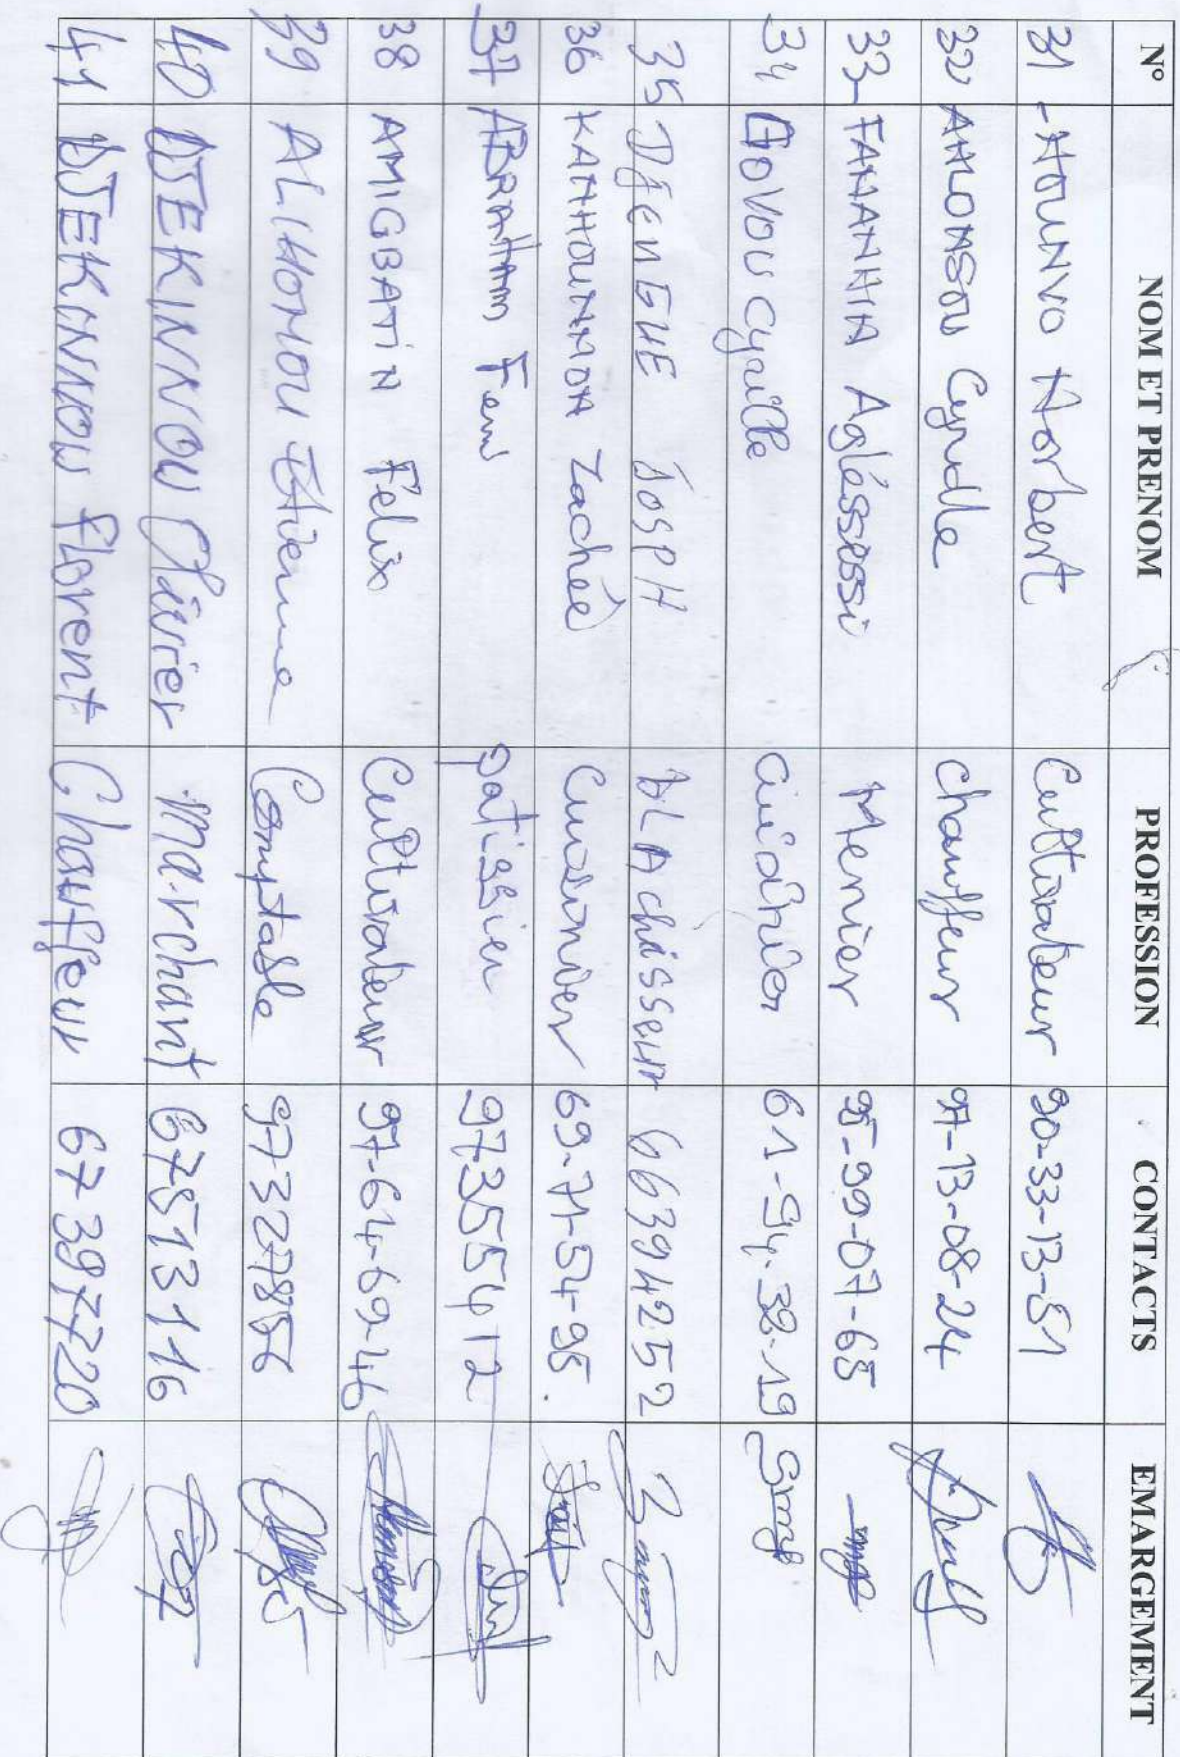 N° NOM ET PRENOM PROFESSION CONTACTS EMARGEMENT
31 -HOUNVO Norbert Cultivateur 90-33-13-51
32 AHLONSOU Cyrille chauffeur 97-13-08-24
33- FANANHIA Agléssessi Menier 95-99-07-65
34 GOVOU Cyrille 61-94-32-19
35 DJENGUE JOSPH bLAchisseur 66394252
36 KANHOUNNON Zachée Cuisinier 69-71-54-95.
37 ABRAHAM Femi patissier 97355412
38 AMIGBATIN Félix Cultivateur 97-64-69-46
39 ALIHONOU Etienne Comptable 97327856
40 DJEKINNOU Olivier Marchant 67513116
41 DJEKINNOU florent Chauffeur 67397720